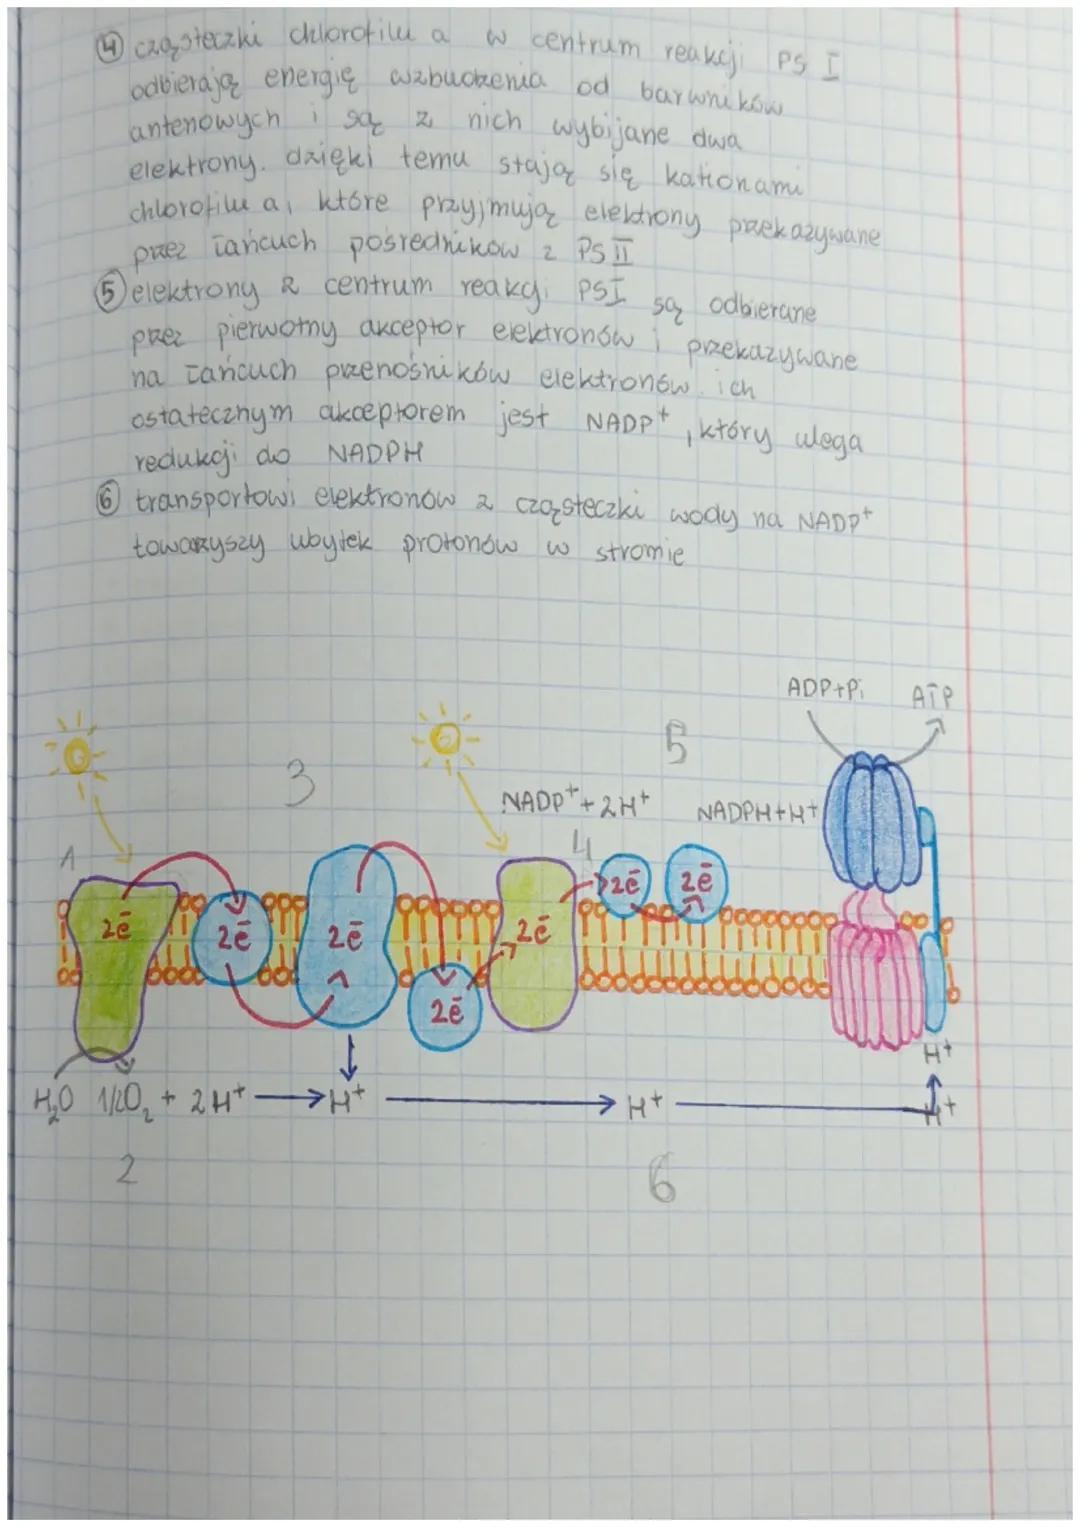 ④ cząsteczki chlorofilu a w centrum reakcji PS I
odbierają energię wzbudzenia od barwników
antenowych i są z nich wybijane dwa
elektrony. dzięki temu stają się kationami
chlorofilu a, które przyjmują elektrony przekazywane
przez łańcuch pośredników z PS II
⑤ elektrony z centrum reakcji PSI są odbierane
przez pierwotny akceptor elektronów i przekazywane
na łańcuch przenośników elektronów. ich
ostatecznym akceptorem jest NADP⁺, który ulega
redukcji do NADPH
⑥ transportowi elektronów z cząsteczki wody na NADP⁺
towarzyszy ubytek protonów w stromie
ADP+Pi ATP
3 5
NADP⁺+2H⁺ NADPH+H⁺
1 4
2ē 2ē 2ē 2ē 2ē 2ē
2ē
H⁺
H₂O 1/2O₂ + 2H⁺ H⁺ H⁺ H⁺
2 6